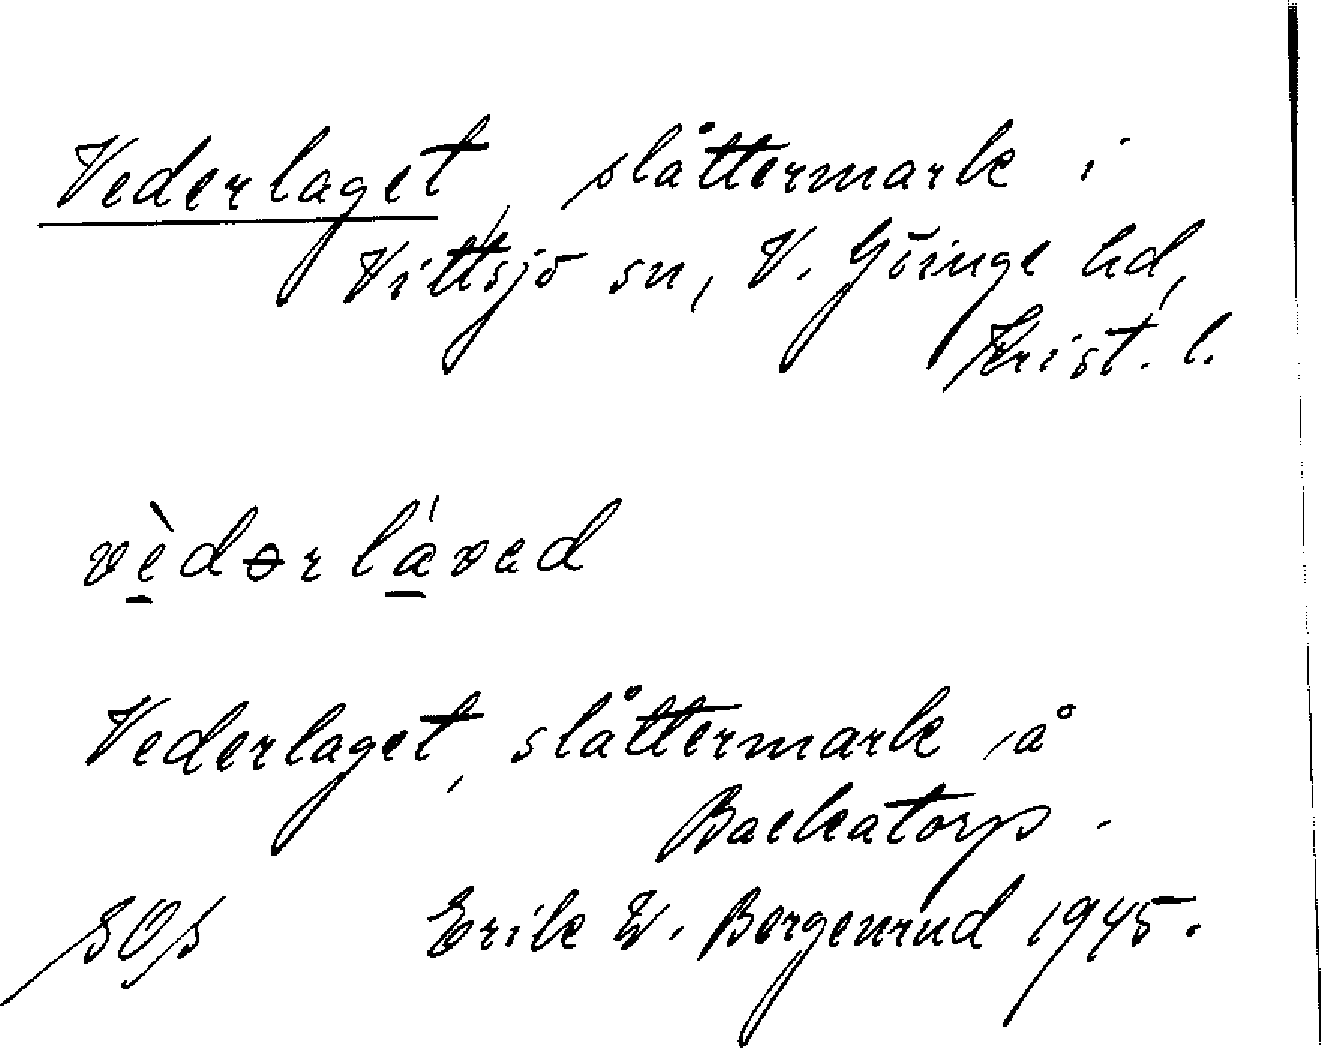 Vederlaget, slåttermark i
Vittsjö sn, V. Göinge hd,
Krist. l.
vèdərlávad
Vederlaget, slåttermark å
Backatorp.
Erik W. Bergenrud 1945.